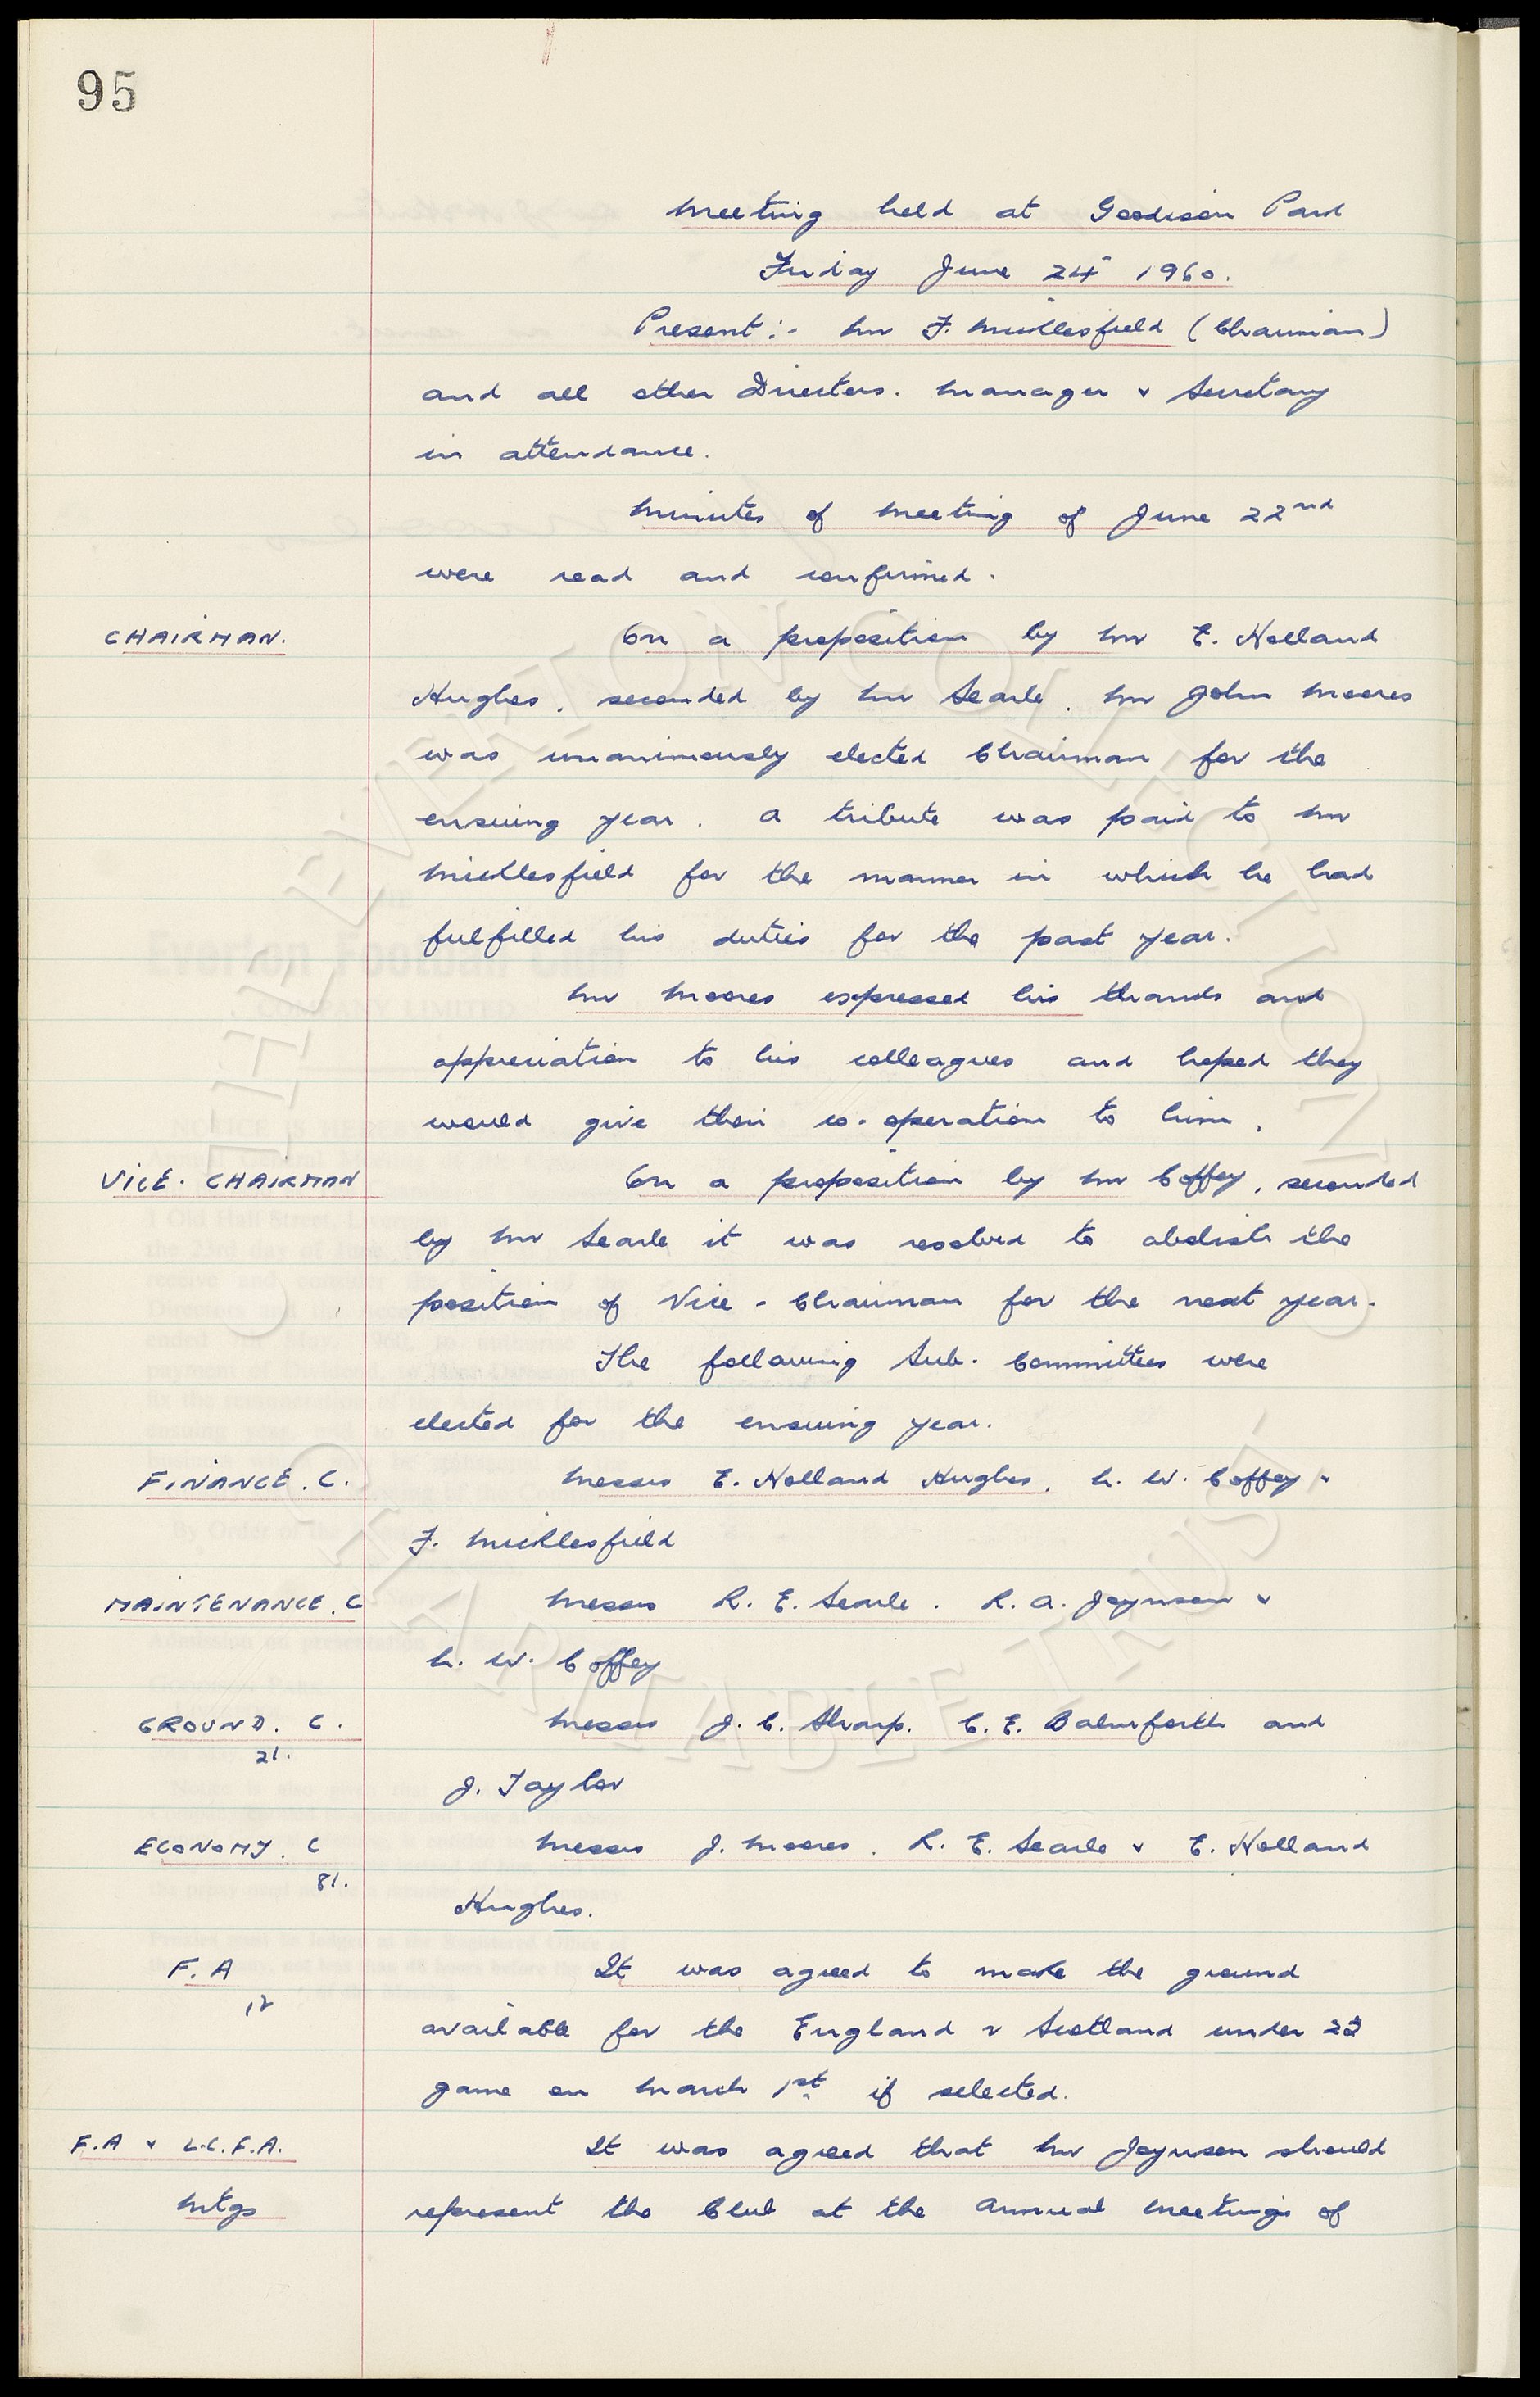 95
Meeting held at Goodison Park
Friday June 24 1960.
Present :- Mr F. Micklesfield (Chairman)
and all other Directors. Manager & Secretary
in attendance.
Minutes of meeting of June 22nd
were read and confirmed.
CHAIRMAN. On a proposition by Mr E. Holland
Hughes, seconded by Mr Searle, Mr John Moores
was unanimously elected Chairman for the
ensuing year. A tribute was paid to Mr
Micklesfield for the manner in which he had
fulfilled his duties for the past year.
Mr Moores expressed his thanks and
appreciation to his colleagues and hoped they
would give their co-operation to him.
VICE-CHAIRMAN On a proposition by Mr Coffey, seconded
by Mr Searle it was resolved to abolish the
position of Vice-Chairman for the next year.
The following Sub-Committees were
elected for the ensuing year.
FINANCE. C. Messrs E. Holland Hughes, C. W. Coffey &
F. Micklesfield
MAINTENANCE. C Messrs R. E. Searle. R. A. Joynson &
W. Coffey
GROUND. C. Messrs J. C. Sharp. C. E. Balmforth and
21.
J. Taylor
ECONOMY. C Messrs J. Moores. R. E. Searle & E. Holland
81.
Hughes.
F. A It was agreed to make the ground
12
available for the England v Scotland under 23
game on March 1st if selected.
F.A & L.C.F.A. It was agreed that Mr Joynson should
Mtgs represent the Club at the Annual Meetings of
THE EVERTON COLLECTION
CHARITABLE TRUST